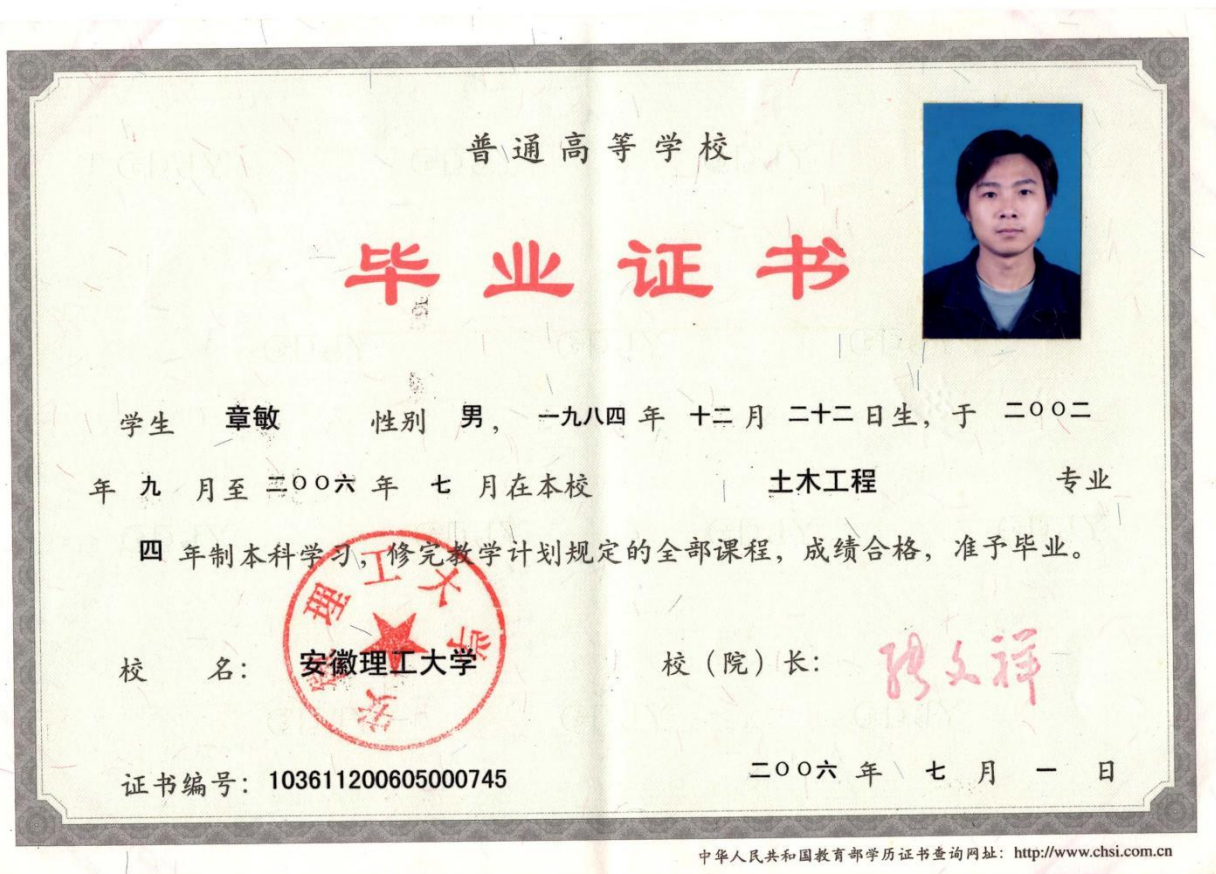 普通高等学校
毕业证书
学生 章敏 性别 男，一九八四年 十二月 二十二日生，于 二〇〇二
年 九 月至 二〇〇六 年 七 月在本校 土木工程 专业
四 年制本科学习，修完教学计划规定的全部课程，成绩合格，准予毕业。
安徽理工大学
校 名：安徽理工大学 校（院）长：
证书编号：103611200605000745 二〇〇六 年 七 月 一 日
中华人民共和国教育部学历证书查询网址：http://www.chsi.com.cn